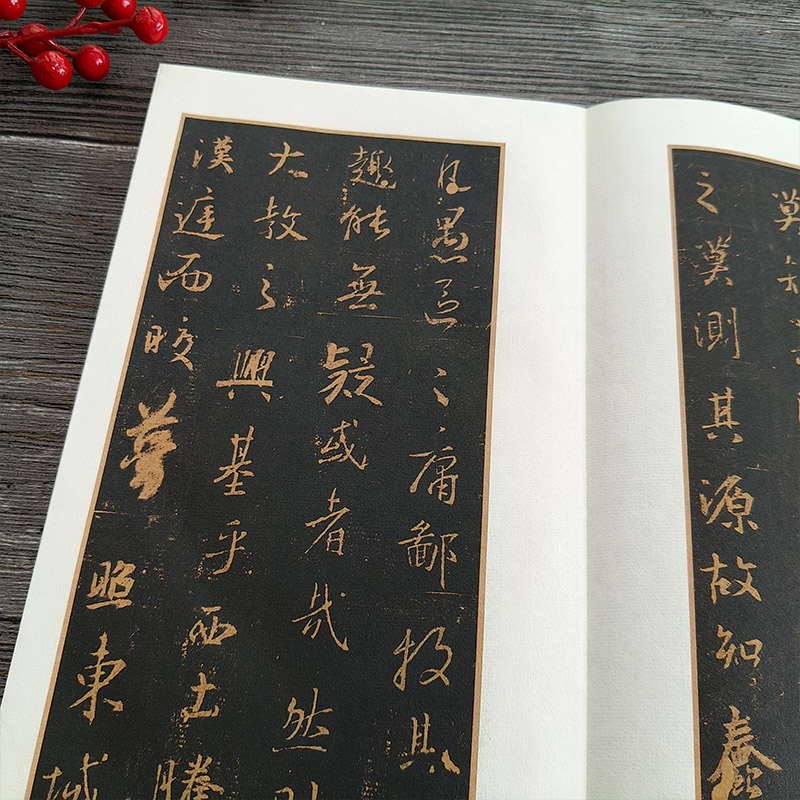 之莫測其源故知蠢
凡愚區〻庸鄙投其
趣能無疑或者哉然
大教之興基乎西土騰
漢庭而皎夢照東域